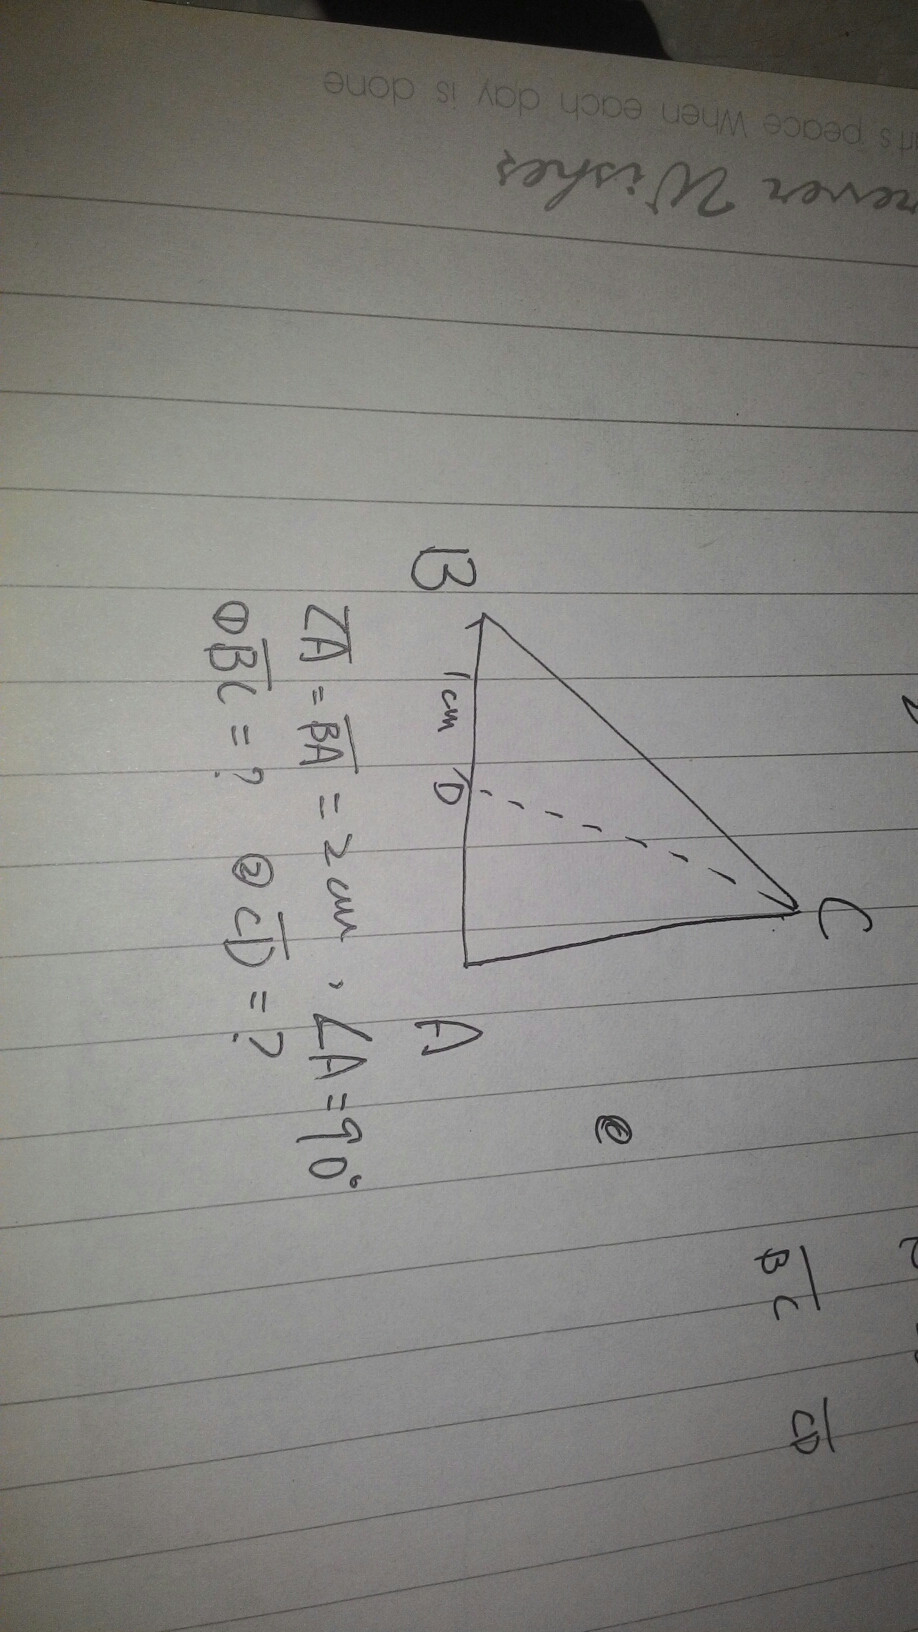 peace when each day is done
Wishes
C
B
1cm
D
A
CA = BA = 2cm, ∠A = 90°
① BC = ? ② CD = ?
BC
CD